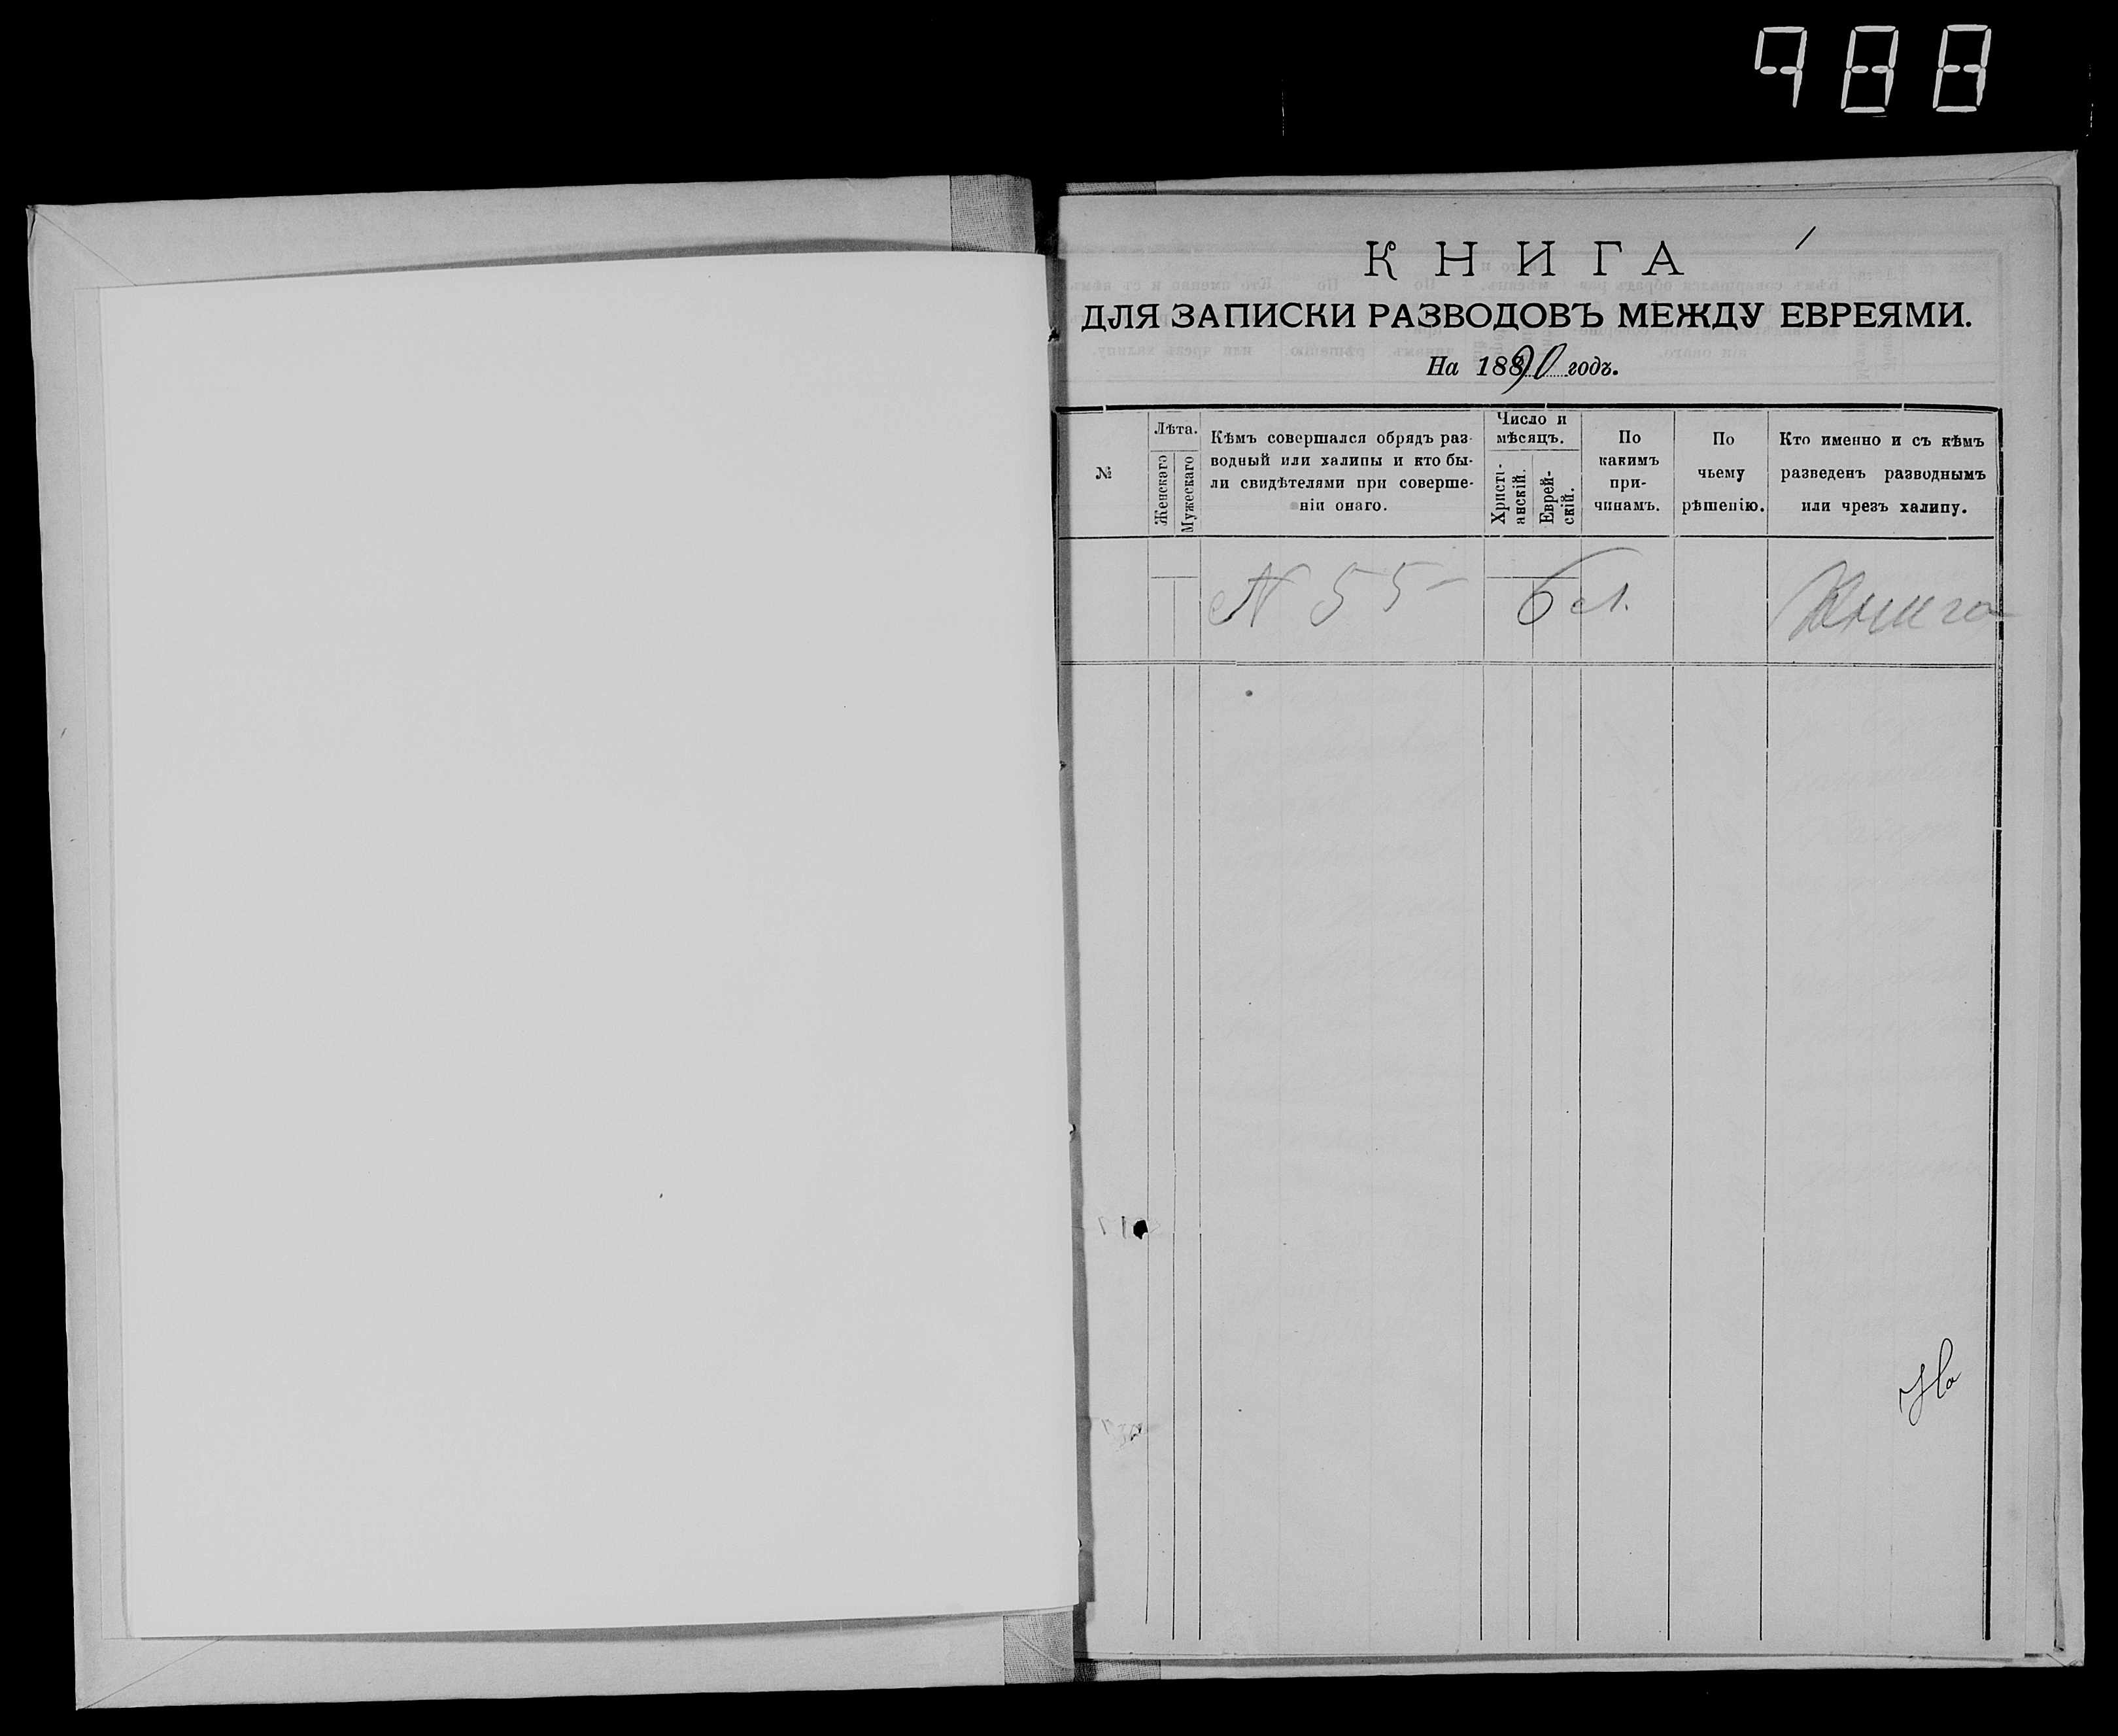 988
КНИГА
ДЛЯ ЗАПИСКИ РАЗВОДОВЪ МЕЖДУ ЕВРЕЯМИ.
На 1890 годъ.
№
Лѣта.
Женскаго
Мужескаго
Кѣмъ совершался обрядъ раз-
водный или халицы и кто бы-
ли свидѣтелями при соверше-
ніи онаго.
Число и
мѣсяцъ.
Христі-
анскій.
Еврей-
скій.
По
какимъ
при-
чинамъ.
По
чьему
рѣшенію.
Кто именно и съ кѣмъ
разведенъ разводнымъ
или чрезъ халицу.
№ 55
Книга